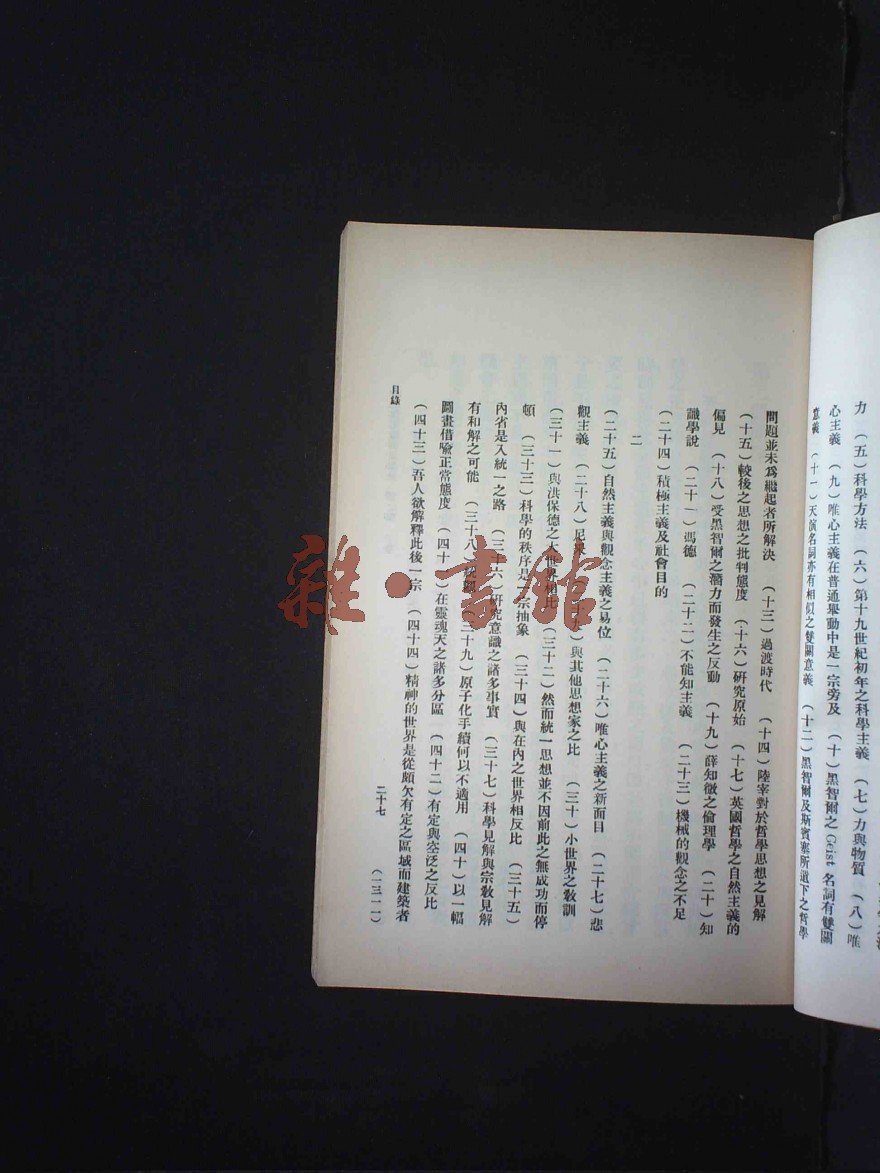 力　（五）科學方法　（六）第十九世紀初年之科學主義　（七）力與物質　（八）唯
心主義　（九）唯心主義在普通舉動中是一宗旁及　（十）黑智爾之 Geist 名詞有雙關
意義　（十一）天演名詞亦有相似之雙關意義　（十二）黑智爾及斯賓塞所遺下之哲學
問題並未爲繼起者所解決　（十三）過渡時代　（十四）陸宰對於哲學思想之見解
（十五）較後之思想之批判態度　（十六）研究原始　（十七）英國哲學之自然主義的
偏見　（十八）受黑智爾之潛力而發生之反動　（十九）薛知微之倫理學　（二十）知
識學說　（二十一）馮德　（二十二）不能知主義　（二十三）機械的觀念之不足
（二十四）積極主義及社會目的
二
（二十五）自然主義與觀念主義之易位　（二十六）唯心主義之新面目　（二十七）悲
觀主義　（二十八）尼采　（二十九）與其他思想家之比　（三十）小世界之教訓
（三十一）與洪保德之大世界相比　（三十二）然而統一思想並不因前此之無成功而停
頓　（三十三）科學的秩序是一宗抽象　（三十四）與在內之世界相反比　（三十五）
內省是入統一之路　（三十六）研究意識之諸多事實　（三十七）科學見解與宗教見解
有和解之可能　（三十八）統觀　（三十九）原子化手續何以不適用　（四十）以一幅
圖畫借喻正常態度　（四十一）在靈魂天之諸多分區　（四十二）有定與空泛之反比
（四十三）吾人欲解釋此後一宗　（四十四）精神的世界是從頗欠有定之區域而建築者
目錄
二十七
（一三一一）
雜·書館